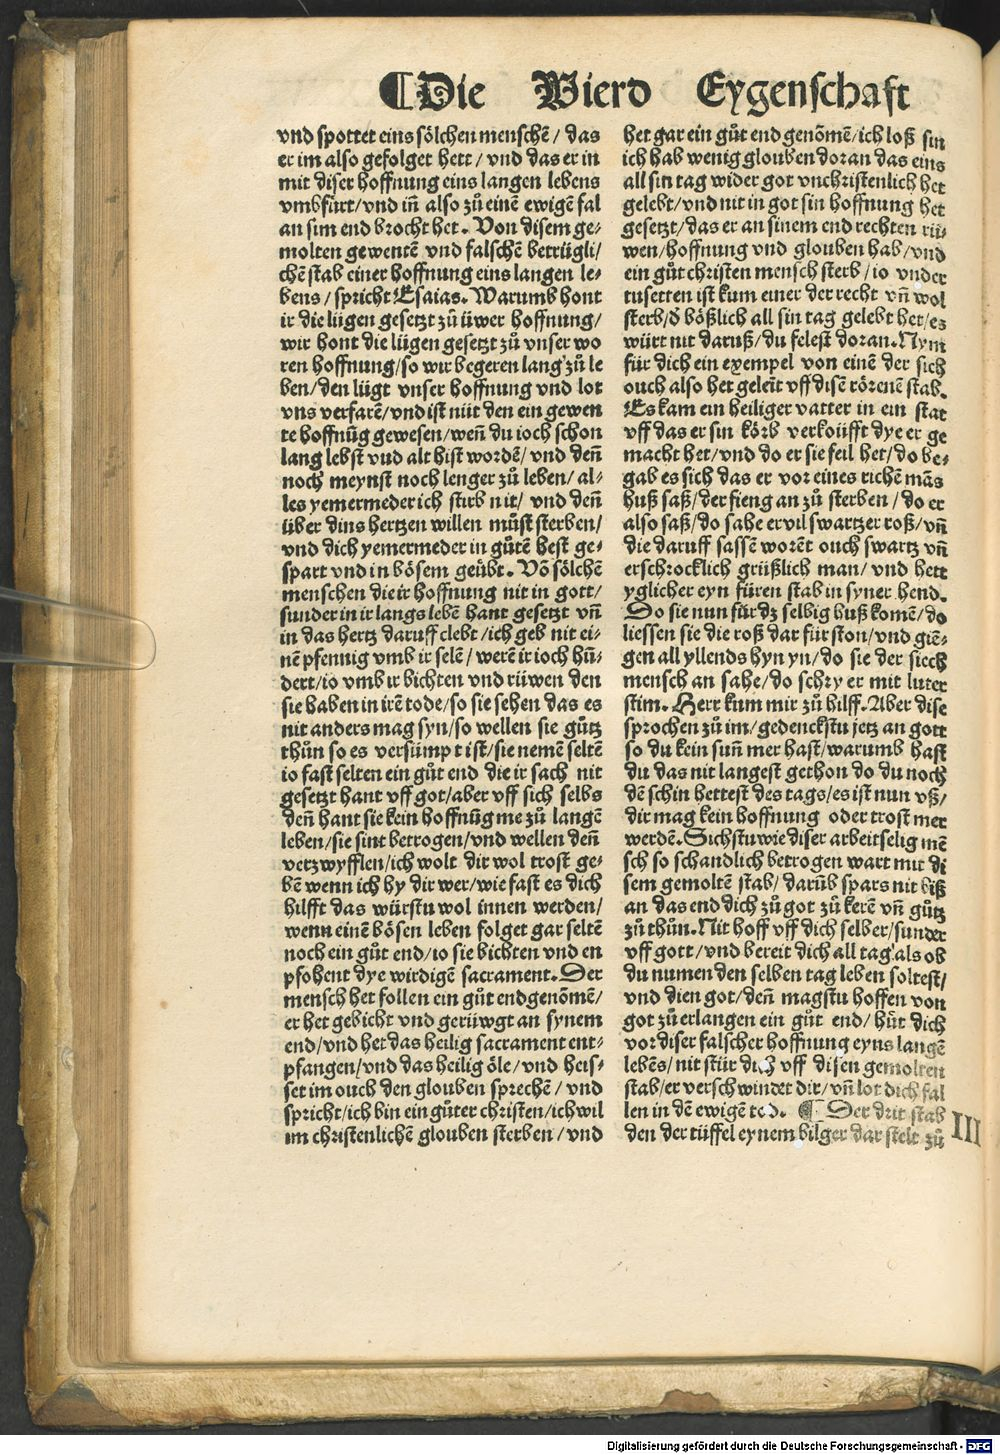 ¶Die Vierd Eygenschaft
vnd spottet eins sölchen menschē / das
er im also gefolget hett / vnd das er in
mit diser hoffnung eins langen lebens
vmbfürt/vnd iñ also zů einē ewigē fal
an sim end brocht het. Von disem ge⸗
molten gewentē vnd falschē betrügli/
chē stab einer hoffnung eins langen le⸗
bens / spricht Esaias. Warumb hont
ir die lügen gesetzt zů üwer hoffnung/
wir hont die lügen gesetzt zů vnser wo
ren hoffnung/so wir begeren lang zů le
ben/den lügt vnser hoffnung vnd lot
vns verfarē/vnd ist nüt den ein gewen
te hoffnūg gewesen/weñ du ioch schon
lang lebst vnd alt bist wordē/ vnd deñ
noch meynst noch lenger zů leben/ al⸗
les yemermeder ich stirb nit/ vnd deñ
über dins hertzen willen můst sterben/
vnd dich yemermeder in gůtē best ge⸗
spart vnd in bösem geübt. Vō sölchē
menschen die ir hoffnung nit in gott/
sunder in ir langs lebē hant gesetzt vñ
in das hertz daruff clebt /ich geb nit ei⸗
nē pfennig vmb ir selē/ werē ir ioch hū⸗
dert/io vmb ir bichten vnd rüwen den
sie haben in irē tode/so sie sehen das es
nit anders mag syn/so wellen sie gůtz
thůn so es versümpt ist/sie nemē seltē
io fast selten ein gůt end die ir sach nit
gesetzt hant vff got/aber vff sich selbs
deñ hant sie kein hoffnūg me zů langē
leben/sie sint betrogen/vnd wellen deñ
verzwyfflen/ich wolt dir wol trost ge⸗
bē wenn ich by dir wer/wie fast es dich
hilfft das würstu wol innen werden/
wenn einē bösen leben folget gar seltē
noch ein gůt end/io sie bichten vnd en
pfohent dye wirdigē sacrament. Der
mensch het follen ein gůt end genōmē/
er het gebicht vnd gerüwgt an synem
end/vnd het das heilig sacrament ent⸗
pfangen/vnd das heilig öle/vnd heis⸗
set im ouch den glouben sprechē/ vnd
spricht/ich bin ein gůter christen/ich wil
im christenlichē glouben sterben/vnd
het gar ein gůt end genōmē/ich loß sin
ich hab wenig glouben doran das eins
all sin tag wider got vnchristenlich het
gelebt/vnd nit in got sin hoffnung het
gesetzt/das er an sinem end rechten rü⸗
wen/hoffnung vnd glouben hab/vnd
ein gůt christen mensch sterb/io vnder
tusetten ist kum einer der recht vñ wol
sterb/d bößlich all sin tag gelebt het/es
würt nit daruß/du felest doran. Nym
für dich ein exempel von einē der sich
ouch also het geleñt vff disē rörenē stab.
Es kam ein heiliger vatter in ein stat
vff das er sin körb verkoüfft dye er ge
macht het/vnd do er sie feil het/do be⸗
gab es sich das er vor eines richē mās
huß saß/der fieng an zů sterben / do er
also saß/do sahe er vil swartzer roß/vñ
die daruff sassē worēt ouch swartz vñ
erschrocklich grüßlich man/ vnd hett
yglicher eyn füren stab in syner hend.
Do sie nun für dz selbig huß komē/do
liessen sie die roß dar für ston/vnd giē⸗
gen all yllends hyn yn/do sie der siech
mensch an sahe/do schry er mit luter
stim. Herr kum mir zů hilff. Aber dise
sprochen zů im/gedenckstu jetz an gott
so du kein suñ mer hast/warumb hast
du das nit langest gethon do du noch
dē schin hettest des tags/es ist nun vß/
dir mag kein hoffnung oder trost mer
werdē. Sichstu wie diser arbeitselig mē
sch so schandlich betrogen wart mit di
sem gemoltē stab/ darūb spars nit biß
an das end dich zů got zů kerē vñ gůtz
zů thůn. Nit hoff vff dich selber/sunder
vff gott/vnd bereit dich all tag als ob
du numen den selben tag leben soltest/
vnd dien got/deñ magstu hoffen von
got zů erlangen ein gůt end/ hüt dich
vor diser falscher hoffnung eyns langē
lebēs/nit stür dich vff disen gemolten
stab/er verschwindet dir/vñ lot dich fal
len in dē ewigē tod. ¶ Der drit stab
den der tüffel eynem bilger dar stelt zů
III
Digitalisierung gefördert durch die Deutsche Forschungsgemeinschaft - DFG